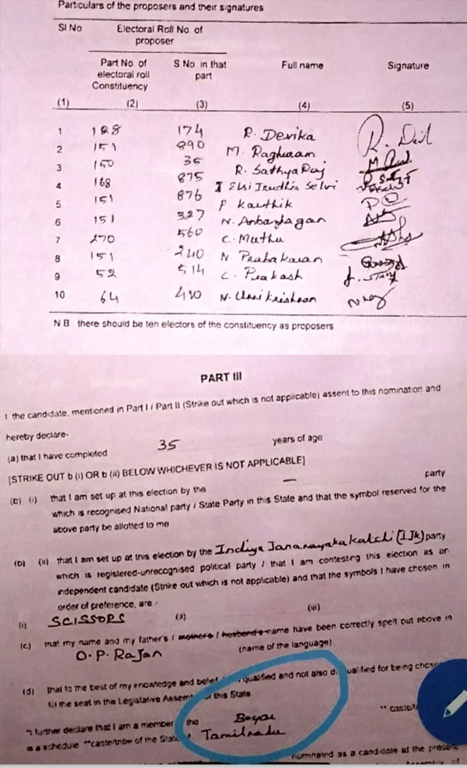 Particulars of the proposers and their signatures
Sl No Electoral Roll No. of proposer Full name Signature
Part No. of electoral roll Constituency S No in that part
(1) (2) (3) (4) (5)
1 174 R. Devika
2 151 890 M.
3 150 35 R. SathyaRaj
4 168 875 Selvi
5 151 876 P Karthik
6 151 327 N.
7 270 560 C. Muthu
8 151 240 N Prabakaran
9 52 514 C. Prakash
10 64 N. Unni Krishnan
N B there should be ten electors of the constituency as proposers
PART III
I the candidate, mentioned in Part I / Part II (Strike out which is not applicable) assent to this nomination and
hereby declare-
(a) that I have completed 35 years of age
[STRIKE OUT b (i) OR b (ii) BELOW WHICHEVER IS NOT APPLICABLE]
(b) (i) that I am set up at this election by the — party
which is recognised National party / State Party in this State and that the symbol reserved for the
above party be allotted to me
(b) (ii) that I am set up at this election by the Indiya Jananayaka Katchi (IJK) party
which is registered-unrecognised political party / that I am contesting this election as an
independent candidate (Strike out which is not applicable) and that the symbols I have chosen, in
order of preference, are -
(i) SCISSORS (ii) (iii)
(c) that my name and my father's / mother's / husband's name have been correctly spelt out above in
O.P. Rajan (name of the language)
(d) that to the best of my knowledge and qualified and not also for being
fill the seat in the Legislative this State
*I further declare that I am a member the Boyar
is a schedule **caste/tribe of the State Tamilnadu
nominated as a candidate at the present